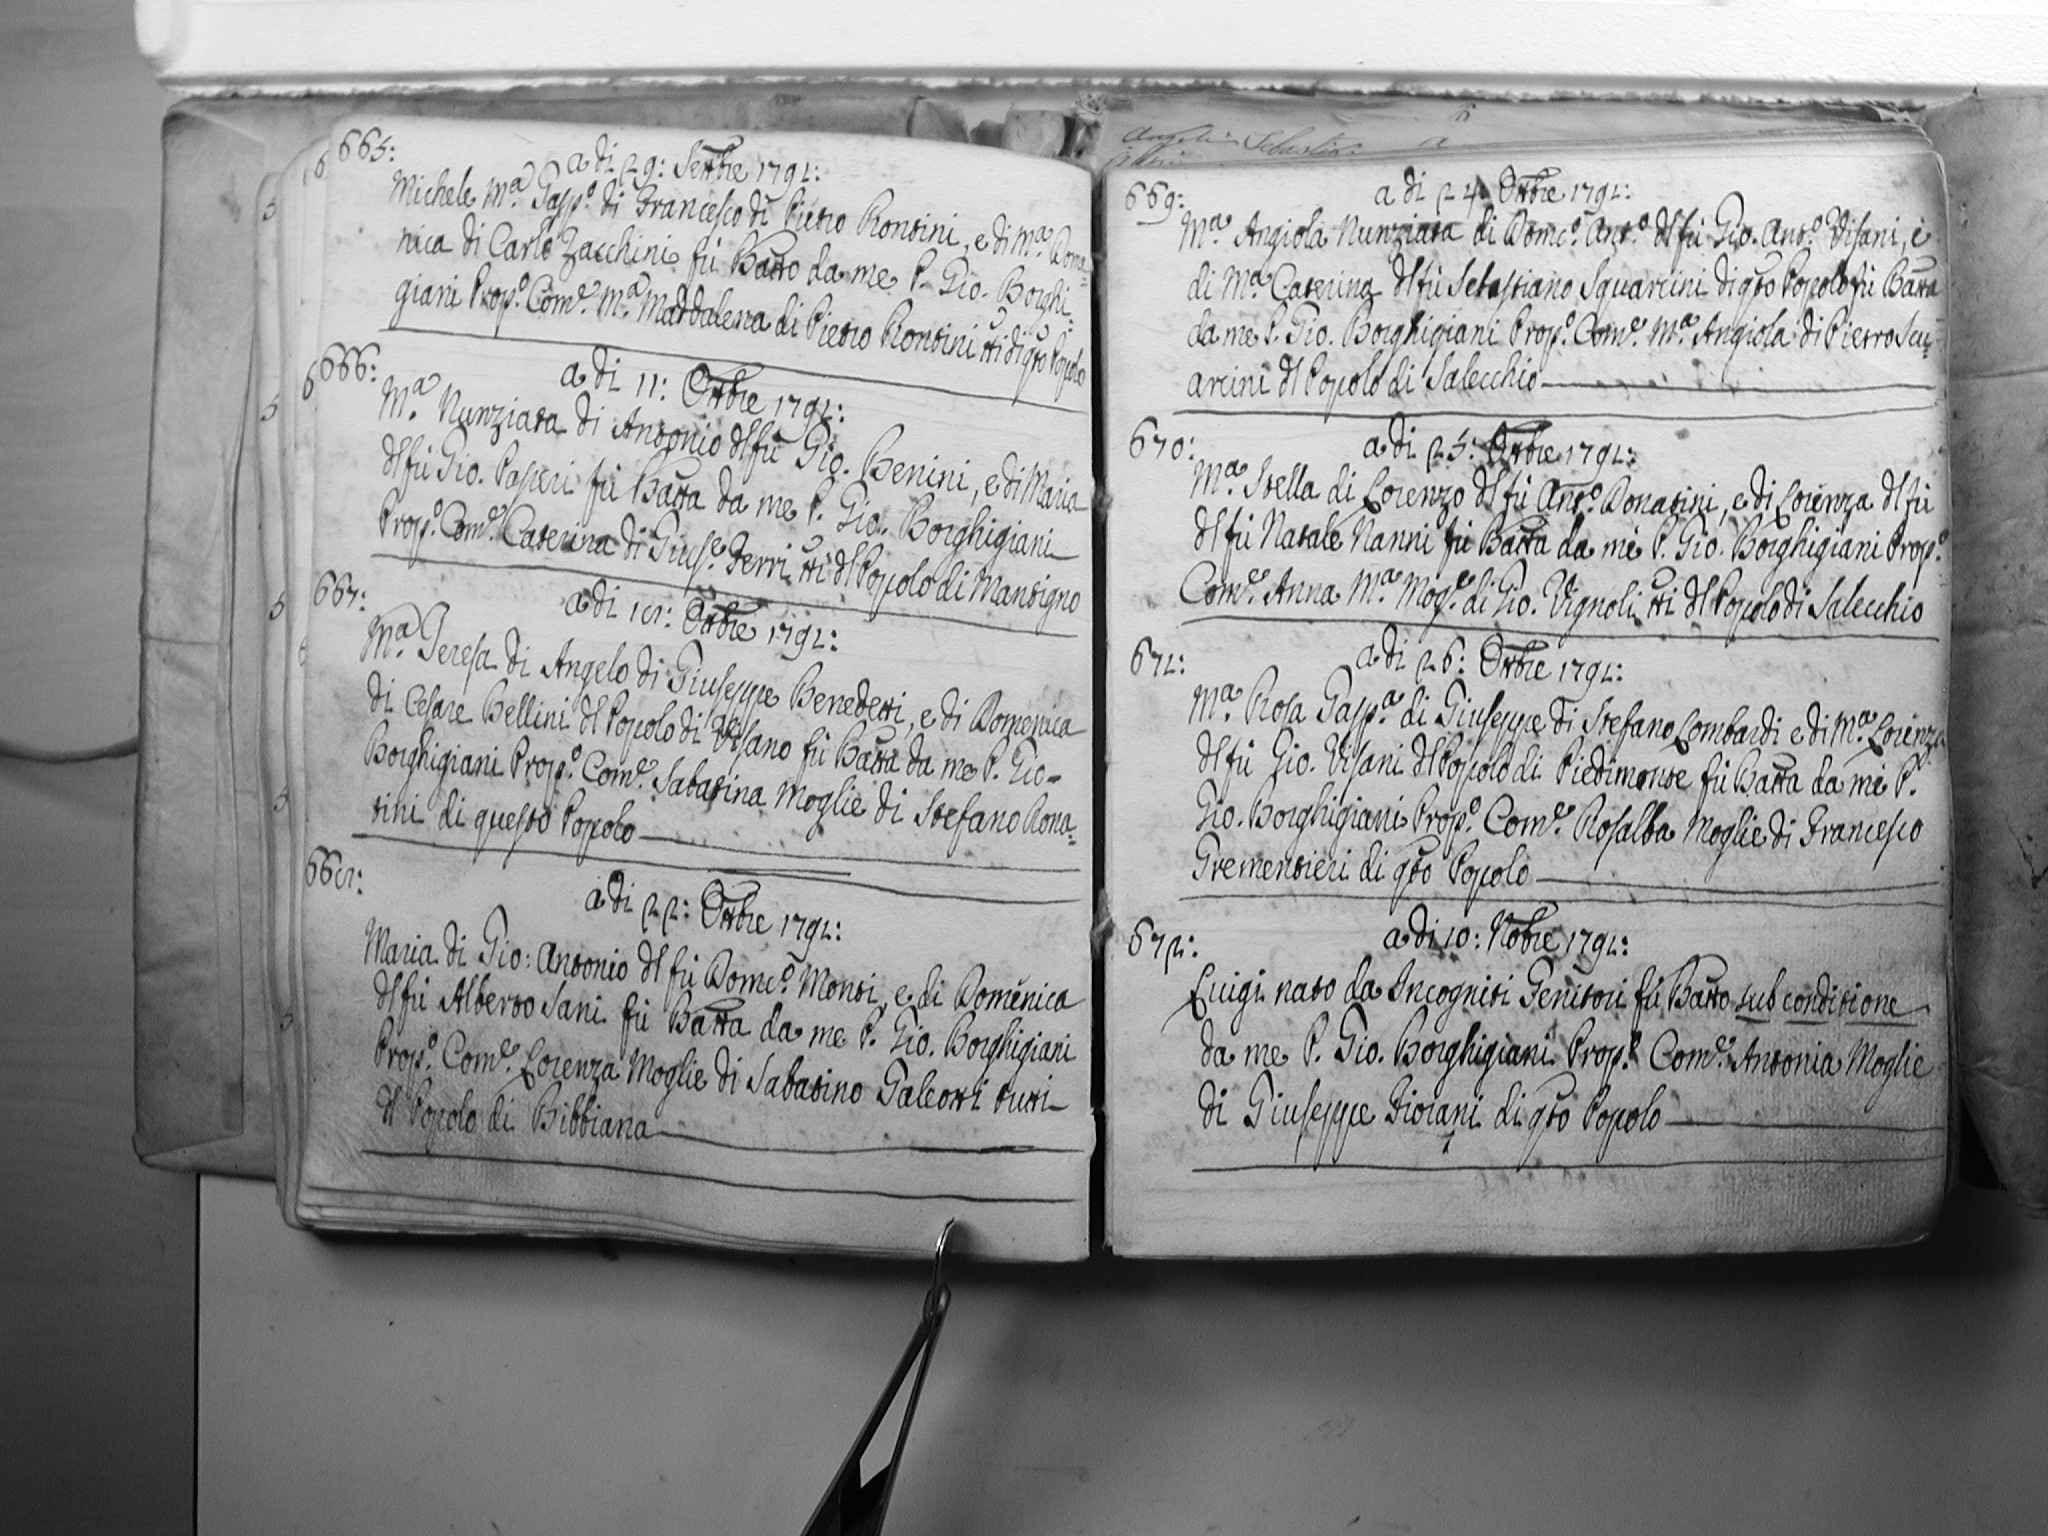 665:
a dì 29: Settbre 1791:
Michele Mª. Gaspº. di Francesco di Pietro Rontini, e di Mª. Dome
nica di Carlo Zacchini fù Batto da me P. Gio. Borghi:
giani Propº. Comᵉ. Mª. Maddalena di Pietro Rontini tti di qto Popolo
666:
a dì 11: Ottbre 1791:
Mª. Nunziata di Antonio dl fù Gio. Benini, e di Maria
dl fù Gio. Paperi fù Batta da me P. Gio. Borghigiani
Propº. Comᵉ. Caterina di Giusᵉ. Ferri tti dl Popolo di Mantigno
667:
a dì 18: Ottbre 1791:
Mª. Teresa di Angelo di Giuseppe Benedetti, e di Domenica
di Cesare Bellini dl Popolo di Visano fù Batta da me P. Gio-
Borghigiani Propº. Comᵉ. Sabatina Moglie di Stefano Rona=
tini di questo Popolo
668:
a dì 22: Ottbre 1791:
Maria di Gio: Antonio dl fù Domcº. Monti, e di Domenica
dl fù Alberto Sani fù Batta da me P. Gio. Borghigiani
Propº. Comᵉ. Lorenza Moglie di Sabatino Galeotti tutti
dl Popolo di Bibbiana
669:
a dì 24 Ottbre 1791:
Mª. Angiola Nunziata di Domcº. Antº. dl fù Gio. Antº. Visani, e
di Mª. Caterina dl fù Sebastiano Squarcini di qto Popolo fù Batta
da me P. Gio. Borghigiani Propº. Comᵉ. Mª. Angiola di Pietro Squ=
arcini dl Popolo di Salecchio
670:
a dì 25: Ottbre 1791:
Mª. Stella di Lorenzo dl fù Antº. Donatini, e di Lorenza dl fù
dl fù Natale Nanni fù Batta da me P. Gio. Borghigiani Propº.
Comᵉ. Anna Mª. Mogᵉ. di Gio. Vignoli tti dl Popolo di Salecchio
671:
a dì 26: Ottbre 1791:
Mª. Rosa Gaspª. di Giuseppe di Stefano Lombardi e di Mª. Lorenza
dl fù Gio. Visani dl Popolo di Piedimonte fù Batta da me P.
Gio. Borghigiani Propº. Comᵉ. Rosalba Moglie di Francesco
Grementieri di qto Popolo
672:
a dì 10: Nobre 1791:
Luigi nato da Incogniti Genitori fù Batto sub conditione
da me P. Gio. Borghigiani Propº. Comᵉ. Antonia Moglie
di Giuseppe Fiorani di qto Popolo